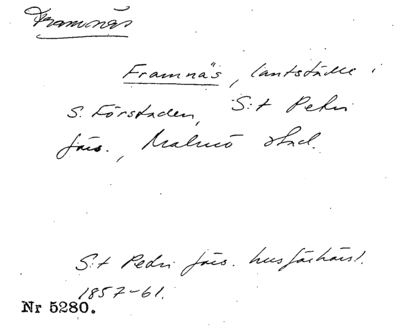 Framnäs
Framnäs, lantställe i
S. Förstaden, S:t Petri
förs., Malmö stad.
S:t Petri förs. husförhörsl.
1857-61.
Nr 5280.